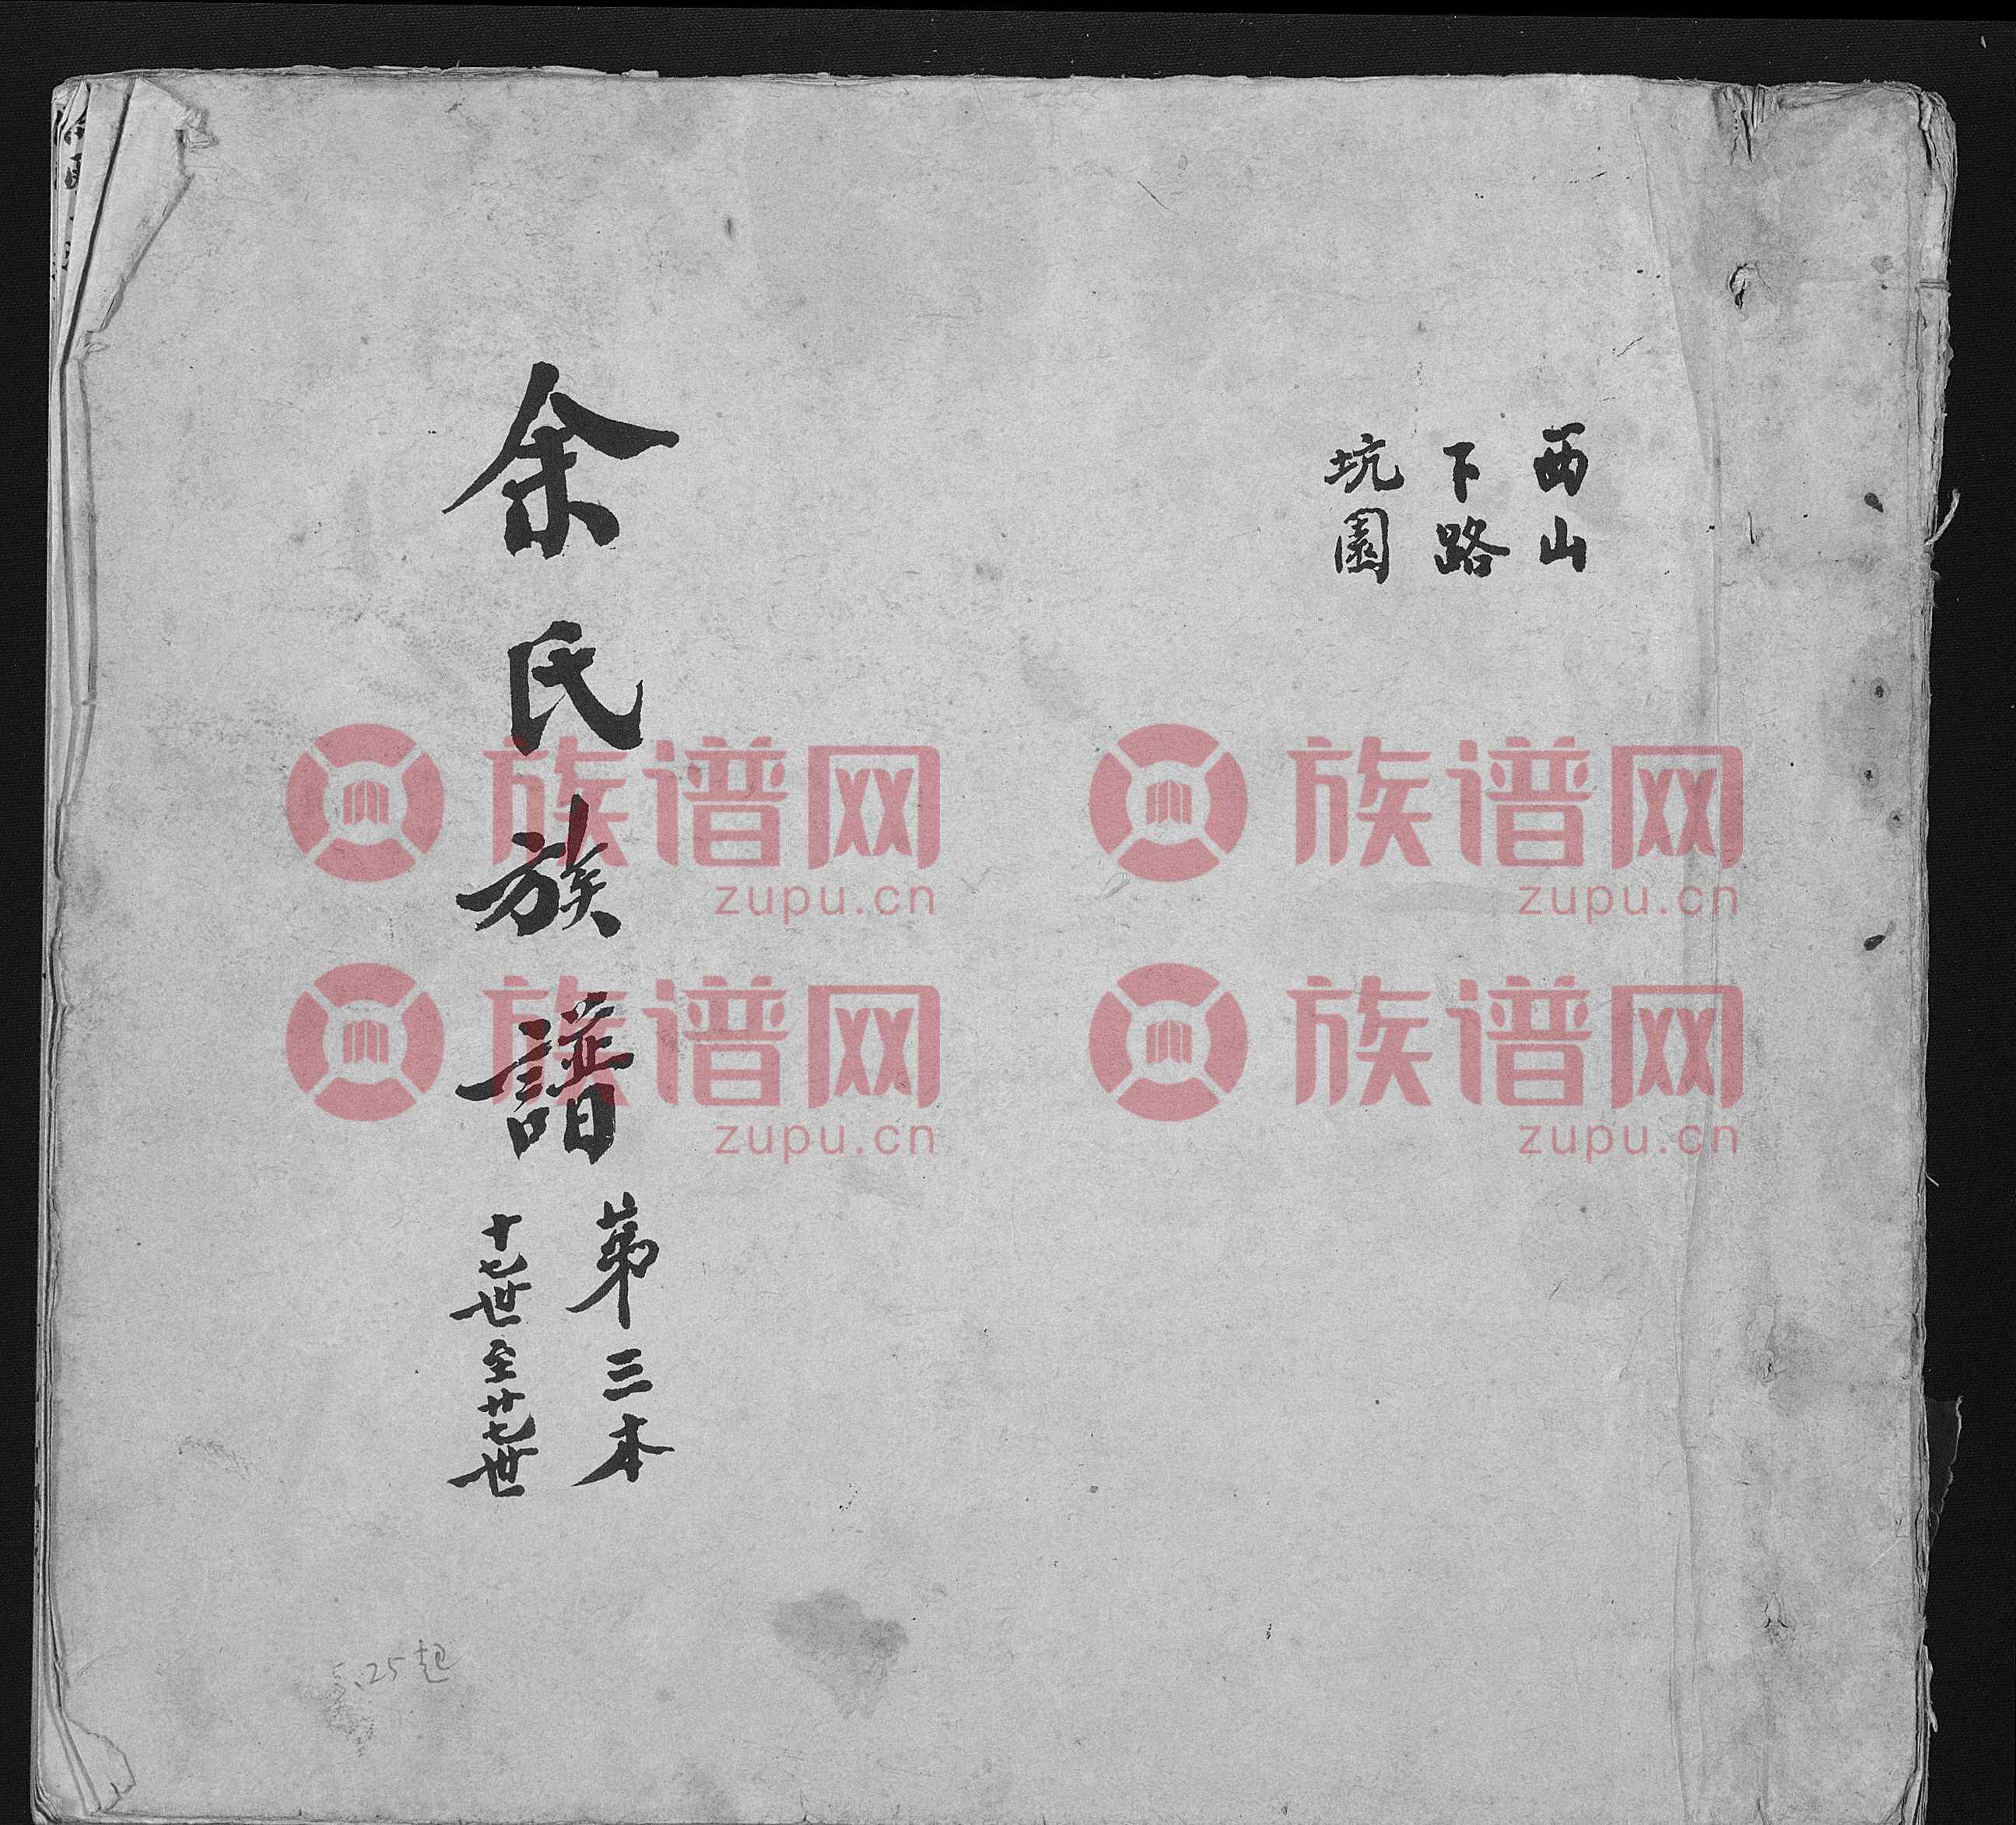 西山
下路
坑園
余氏族譜
第三本
十七世至廿七世
25起
族谱网
zupu.cn
族谱网
zupu.cn
族谱网
zupu.cn
族谱网
zupu.cn